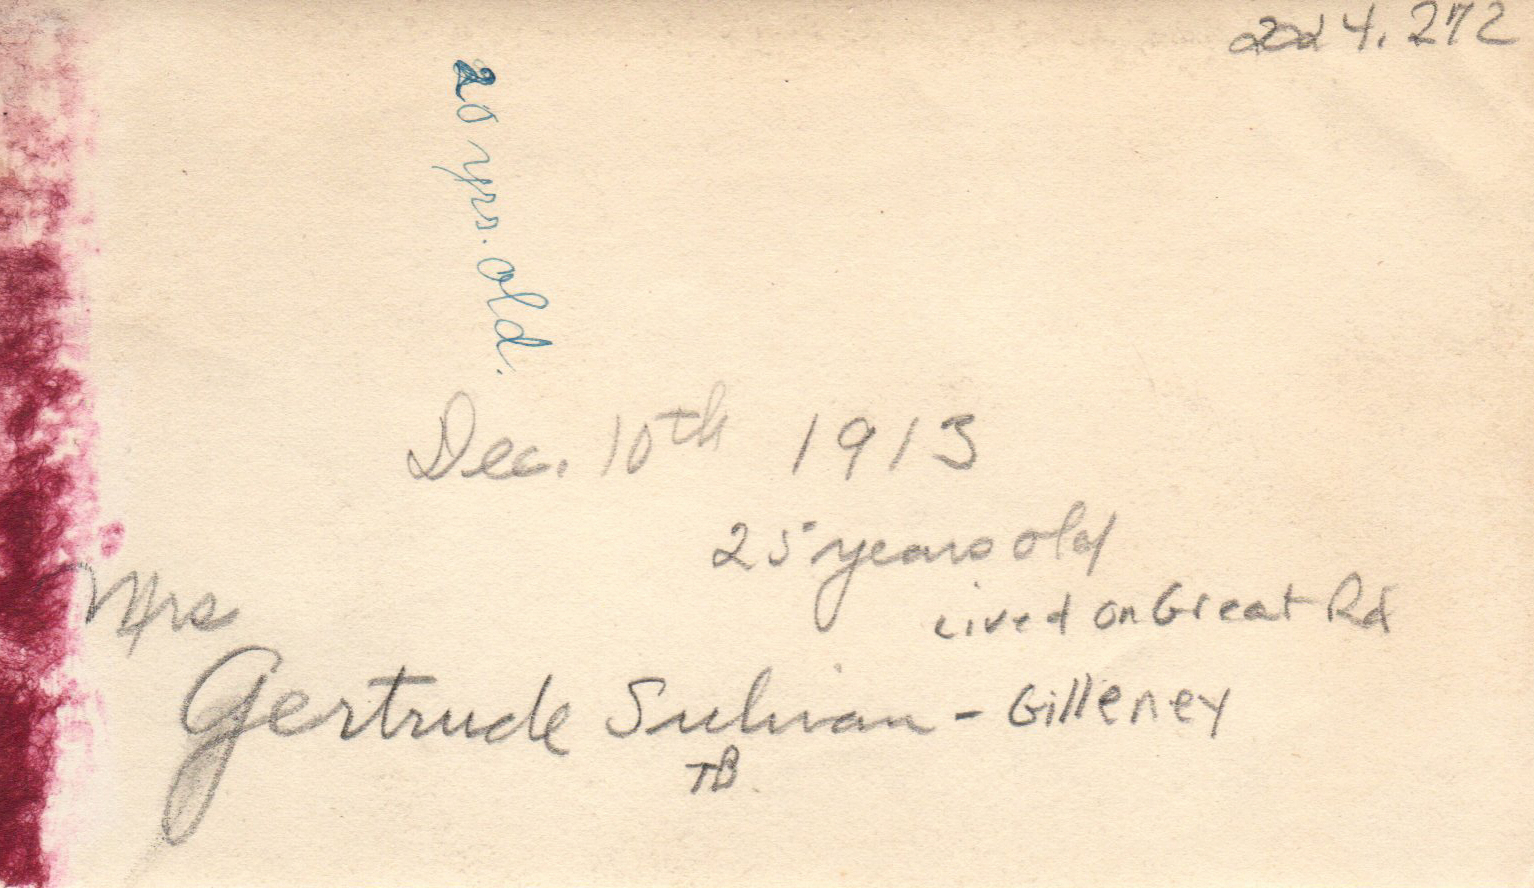 2024.272
20 yrs. old.
Dec. 10th 1913
25 years old
Lived on Great Rd
Mrs
Gertrude Sulivan - Gilleney
TB.